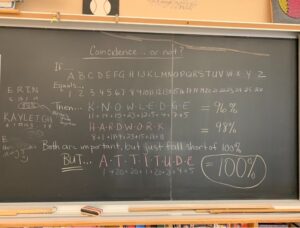 Coincidence.. or not?
If
A B C D E F G H I J K L M N O P Q R S T U V W X Y Z
Equals...
1 2 3 4 5 6 7 8 9 10 11 12 13 14 15 16 17 18 19 20 21 22 23 24 25 26
ERIN
KAYLEIGH
Then... K-N-O-W-L-E-D-G-E = 96%
11+14+15+23+12+5+4+7+5
H-A-R-D-W-O-R-K = 98%
8+1+18+4+23+15+18+11
Both are important, but just fall short of 100%
BUT... A-T-T-I-T-U-D-E =100%
1+20+20+9+20+21+4+5